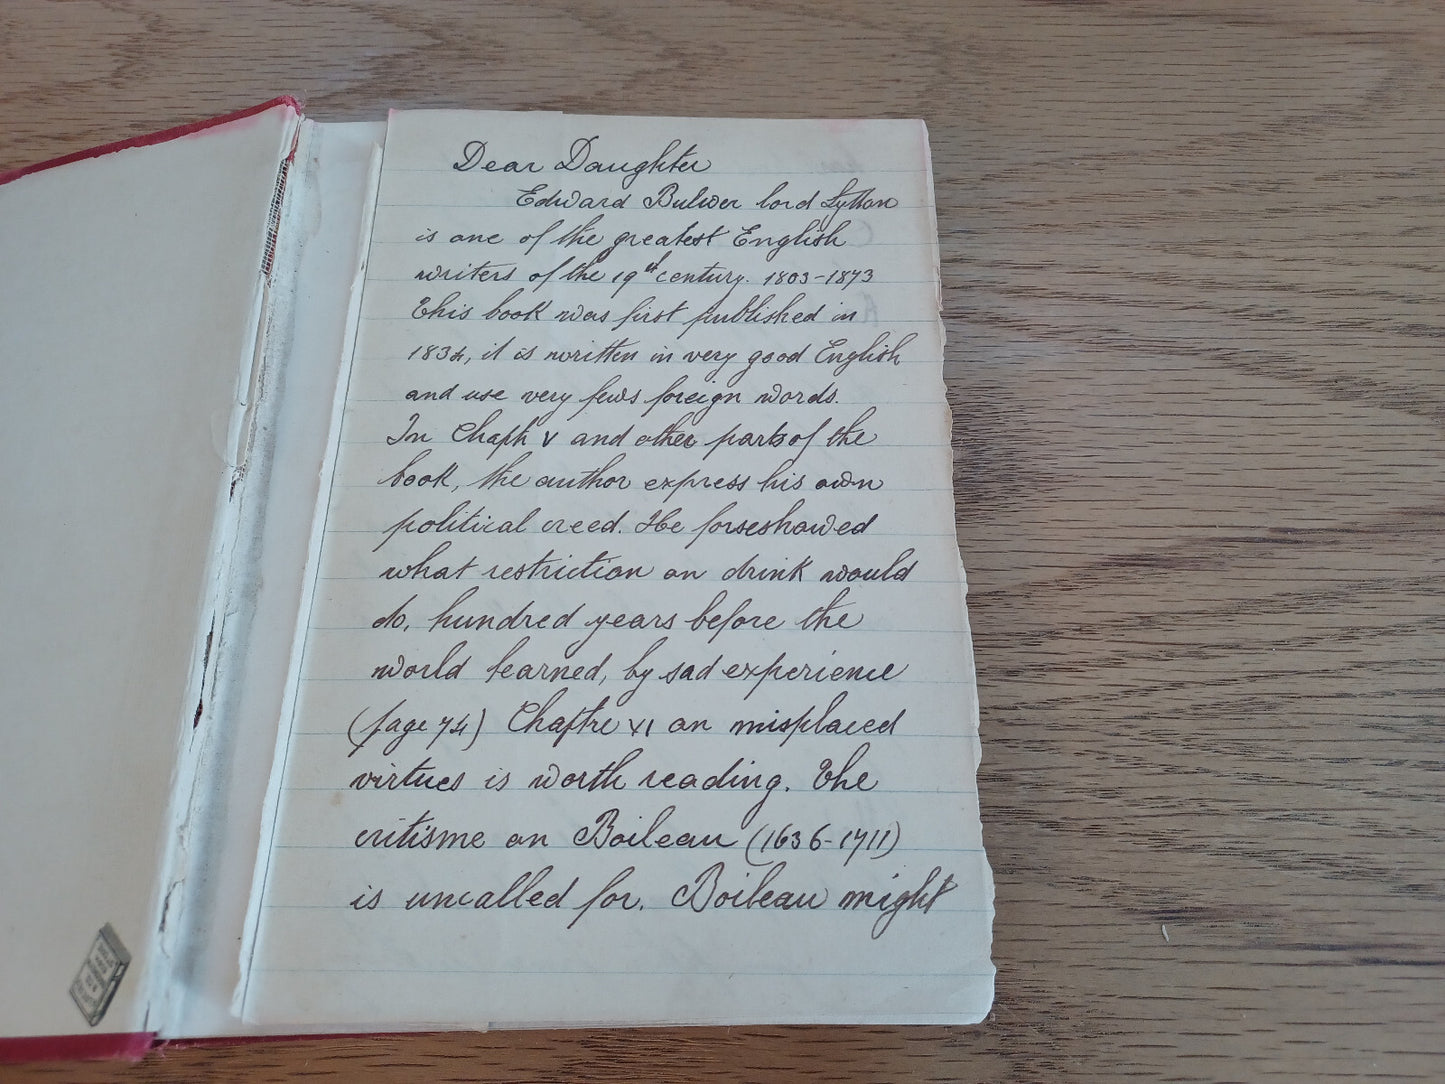 Dear Daughter
Edward Bulwer lord Lytton
is one of the greatest English
writers of the 19th century. 1803-1873
This book was first published in
1834, it is written in very good English
and use very fews foreign words.
In Chaph V and other parts of the
book, the author express his own
political creed. He forseshowed
what restriction on drink would
do, hundred years before the
world learned, by sad experience
(page 74) Chaptre XI on misplaced
virtues is worth reading. The
critisme on Boileau (1636-1711)
is uncalled for. Boileau might